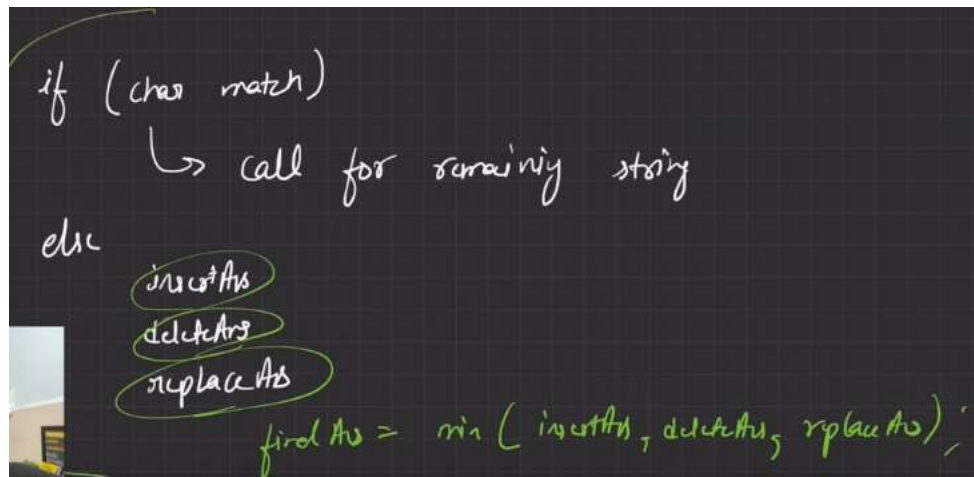 if (char match)
↳ call for remainiy string
else
insertAns
deleteAns
replaceAns
finalAns = min ( insertAns, deleteAns, replaceAns ) ;